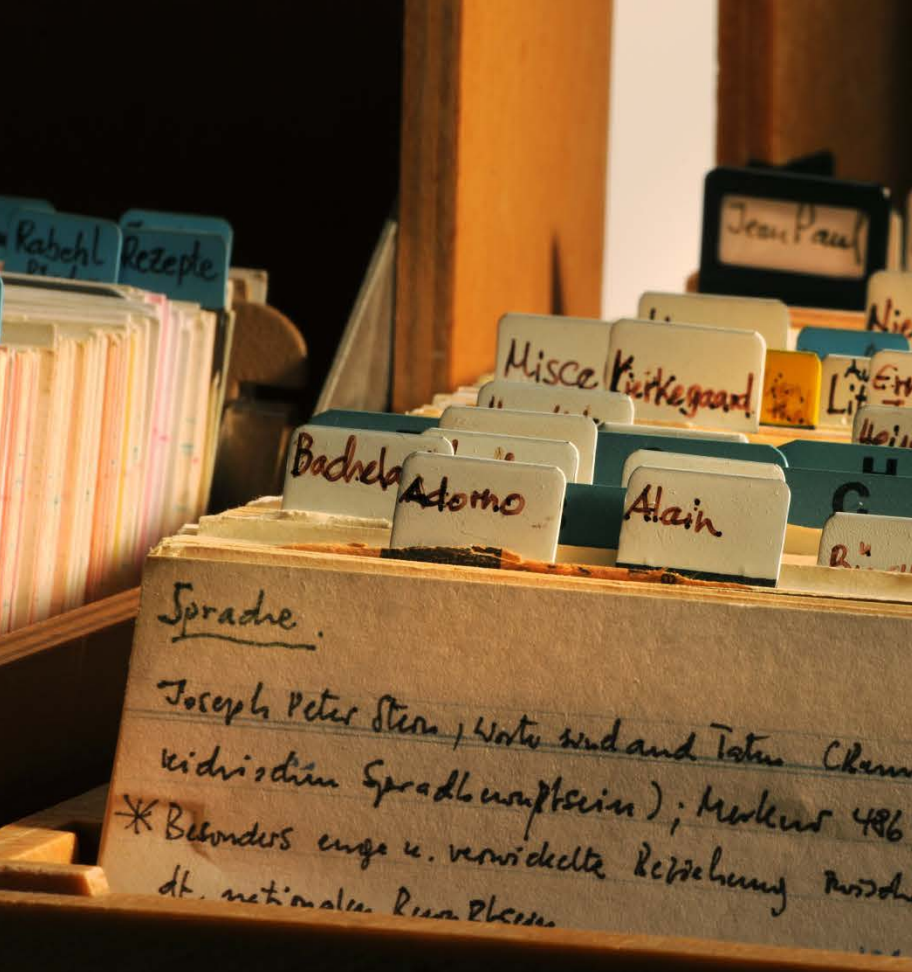 Rabehl
Rezepte
Jean Paul
Misce
Kierkegaard
Lit
Bachela
Adorno
Alain
H
G
Sprache.
Joseph Peter Stern, Worte sind auch Taten
Sprachbewußtsein); Merkur 486
* Besonders enge u. verwickelte Beziehung zwisch
dt. nationalen Bewußtsein